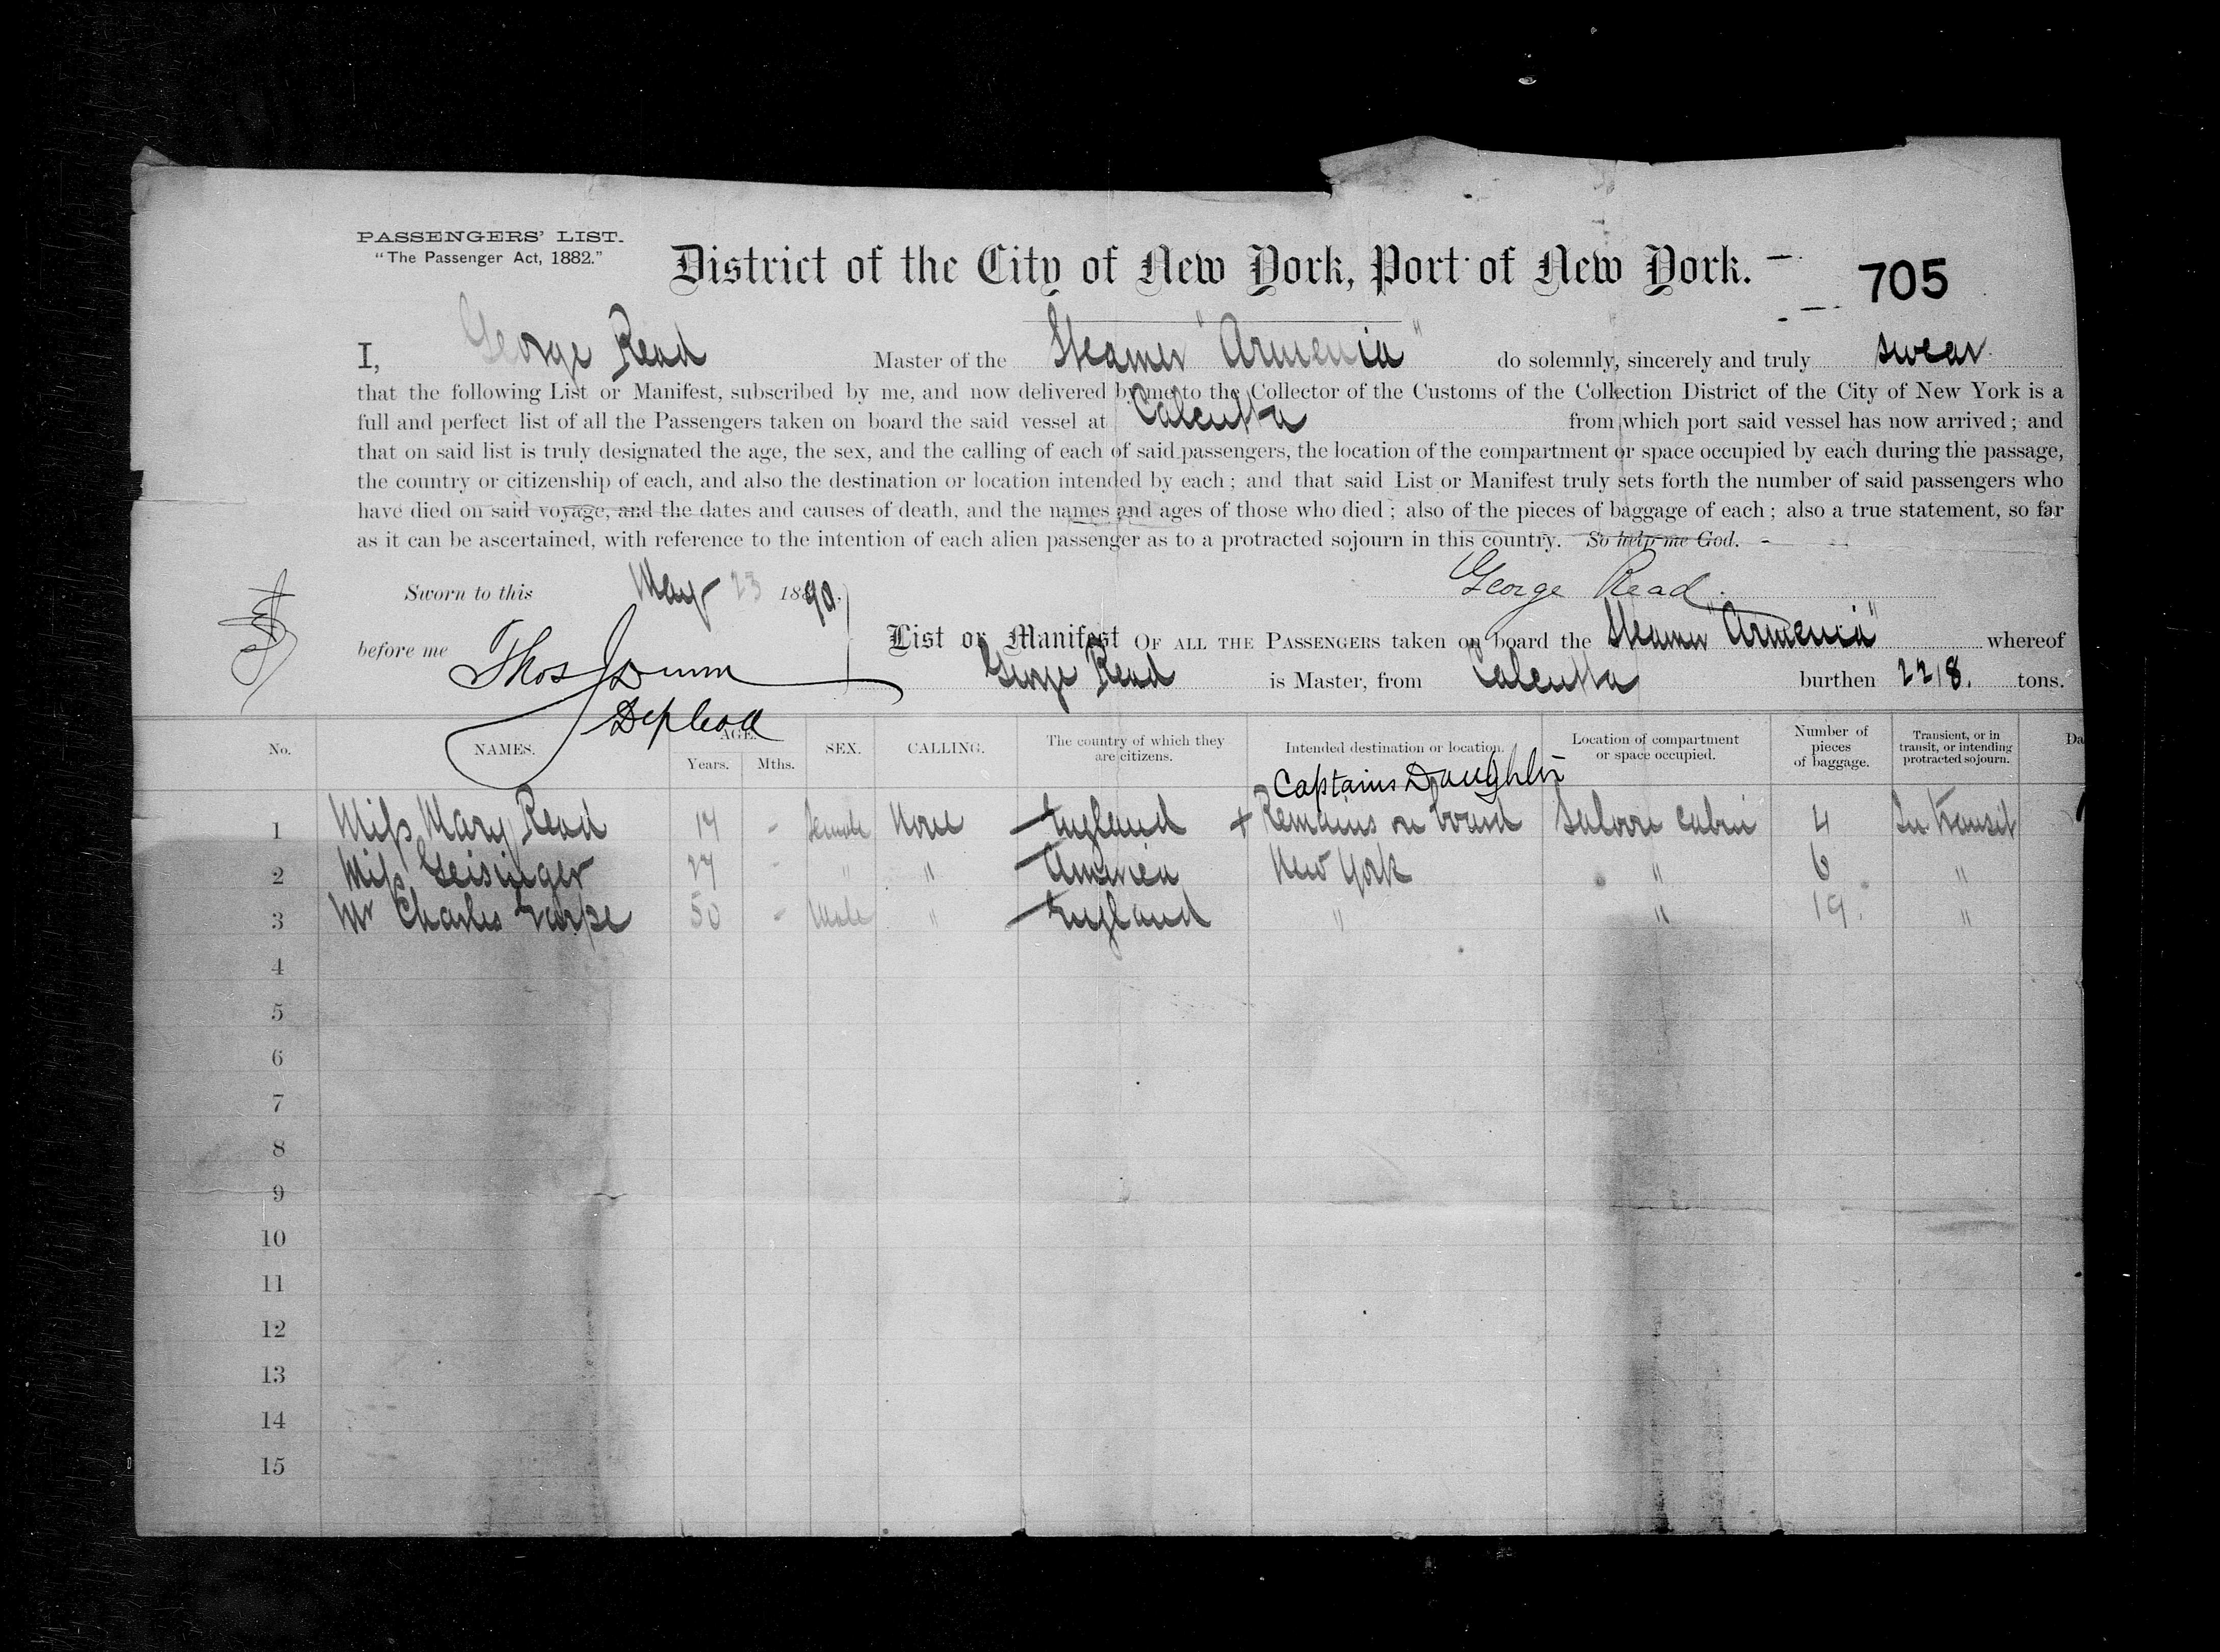 PASSENGERS' LIST.
"The Passenger Act, 1882."
District of the City of New York, Port of New York.
705
I, George Read Master of the Steamer "Armenia" do solemnly, sincerely and truly swear
that the following List or Manifest, subscribed by me, and now delivered by me to the Collector of the Customs of the Collection District of the City of New York is a
full and perfect list of all the Passengers taken on board the said vessel at Calcutta from which port said vessel has now arrived; and
that on said list is truly designated the age, the sex, and the calling of each of said passengers, the location of the compartment or space occupied by each during the passage,
the country or citizenship of each, and also the destination or location intended by each; and that said List or Manifest truly sets forth the number of said passengers who
have died on said voyage, and the dates and causes of death, and the names and ages of those who died; also of the pieces of baggage of each; also a true statement, so far
as it can be ascertained, with reference to the intention of each alien passenger as to a protracted sojourn in this country. So help me God.
Sworn to this May 23 1890.
George Read.
before me Thos J Dunn
Dep Coll
List or Manifest OF ALL THE PASSENGERS taken on board the Steamer "Armenia" whereof
George Read is Master, from Calcutta burthen 2218. tons.
No. NAMES. AGE. Years. Mths. SEX. CALLING. The country of which they are citizens. Intended destination or location. Location of compartment or space occupied. Number of pieces of baggage. Transient, or in transit, or intending protracted sojourn. Da
Captains Daughter
1 Miss Mary Read - Female None England + Remains on board Saloon Cabin 4 In transit
2 Miss Geisinger - " " America New York " 6 "
3 Mr Charles 50 - Male " England " " 19. "
4
5
6
7
8
9
10
11
12
13
14
15